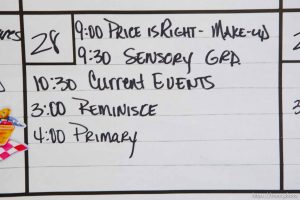 28
9:00 PRICE isRIGHT- MAKE-UP
9:30 SENSORY GRP.
10:30 CURRENT EVENTS
3:00 REMINISCE
4:00 PRIMARY